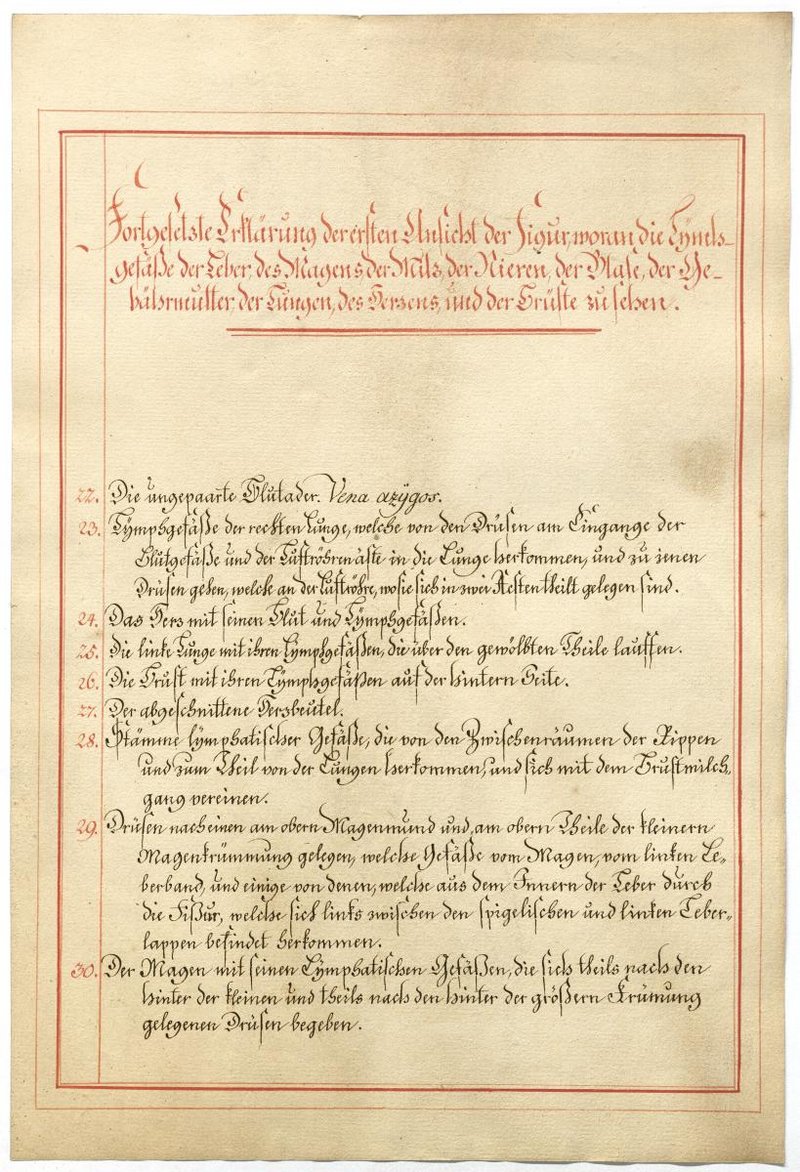 Fortgesetzte Erklärung der ersten Ansicht der Figur, woran die Lÿmph-
gefäße der Leber, des Magens, der Milz, der Nieren, der Blase, der Ge-
bährmutter, der Lungen, des Herzens, und der Brüste zu sehen.
22. Die ungepaarte Blutader. Vena azÿgos.
23. Lÿmphgefäße der rechten Lunge, welche von den Drüsen am Eingange der
Blutgefäße und der Luftröhrenäste in die Lunge herkommen, und zu jenen
Drüsen gehen, welche an der Luftröhre, wo sie sich in zwei Aesten theilt gelegen sind.
24. Das Herz mit seinen Blut und Lÿmphgefäßen.
25. Die linke Lunge mit ihren Lÿmphgefäßen, die über den gewölbten Theile lauffen.
26. Die Brust mit ihren Lÿmphgefäßen auf der hintern Seite.
27. Der abgeschnittene Herzbeutel.
28. Stämme lÿmphatischer Gefäße, die von den Zwischenräumen der Rippen
und zum Theil von der Lungen herkommen, und sich mit dem Brustmilch-
gang vereinen.
29. Drüsen nach einen am obern Magenmund und am obern Theile der kleinern
Magenkrümmung gelegen, welche Gefäße vom Magen, vom linken Le-
berband, und einige von denen, welche aus dem Innern der Leber durch
die Fißur, welche sich links zwischen den spigelischen und linken Leber-
lappen befindet herkommen.
30. Der Magen mit seinen Lÿmphatischen Gefäßen, die sich theils nach den
hinter der kleinen und theils nach den hinter der größern Krümung
gelegenen Drüsen begeben.